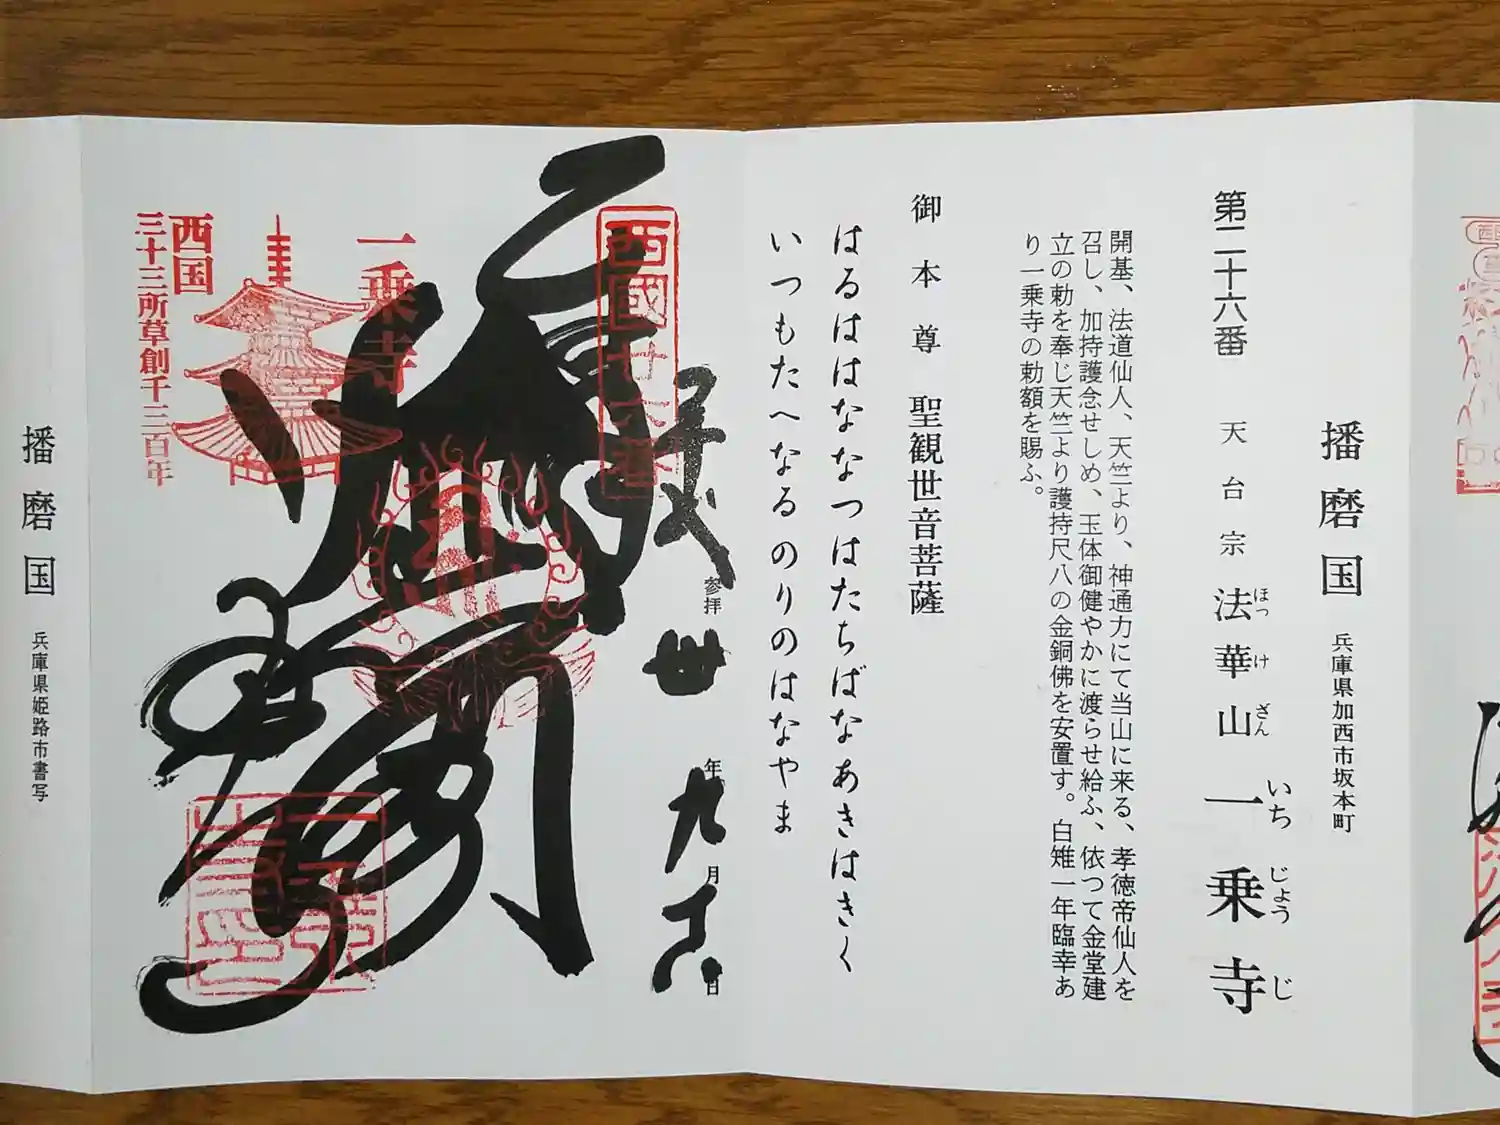 播磨国 兵庫県加西市坂本町
第二十六番 天台宗 法華山 一乗寺
ほっ け ざん いち じょう じ
開基、法道仙人、天竺より、神通力にて当山に来る、孝徳帝仙人を
召し、加持護念せしめ、玉体御健やかに渡らせ給ふ、依つて金堂建
立の勅を奉じ天竺より護持尺八の金銅佛を安置す。白雉一年臨幸あ
り一乗寺の勅額を賜ふ。
御本尊 聖観世音菩薩
はるははなつはたちばなあきはきく
いつもたへなるのりのはなやま
奉拝
参拝 卅年九月
日
西國廿六番
一乗寺
西国
三十三所草創千三百年
播磨国 兵庫県姫路市書写